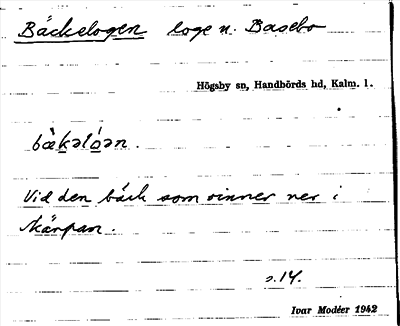 Bäckelogen loge n. Basebo
Högsby sn, Handbörds hd, Kalm. l.
bæ̀kəlóən.
Vid den bäck som rinner ner i
Skärpan.
s. 14.
Ivar Modéer 1942